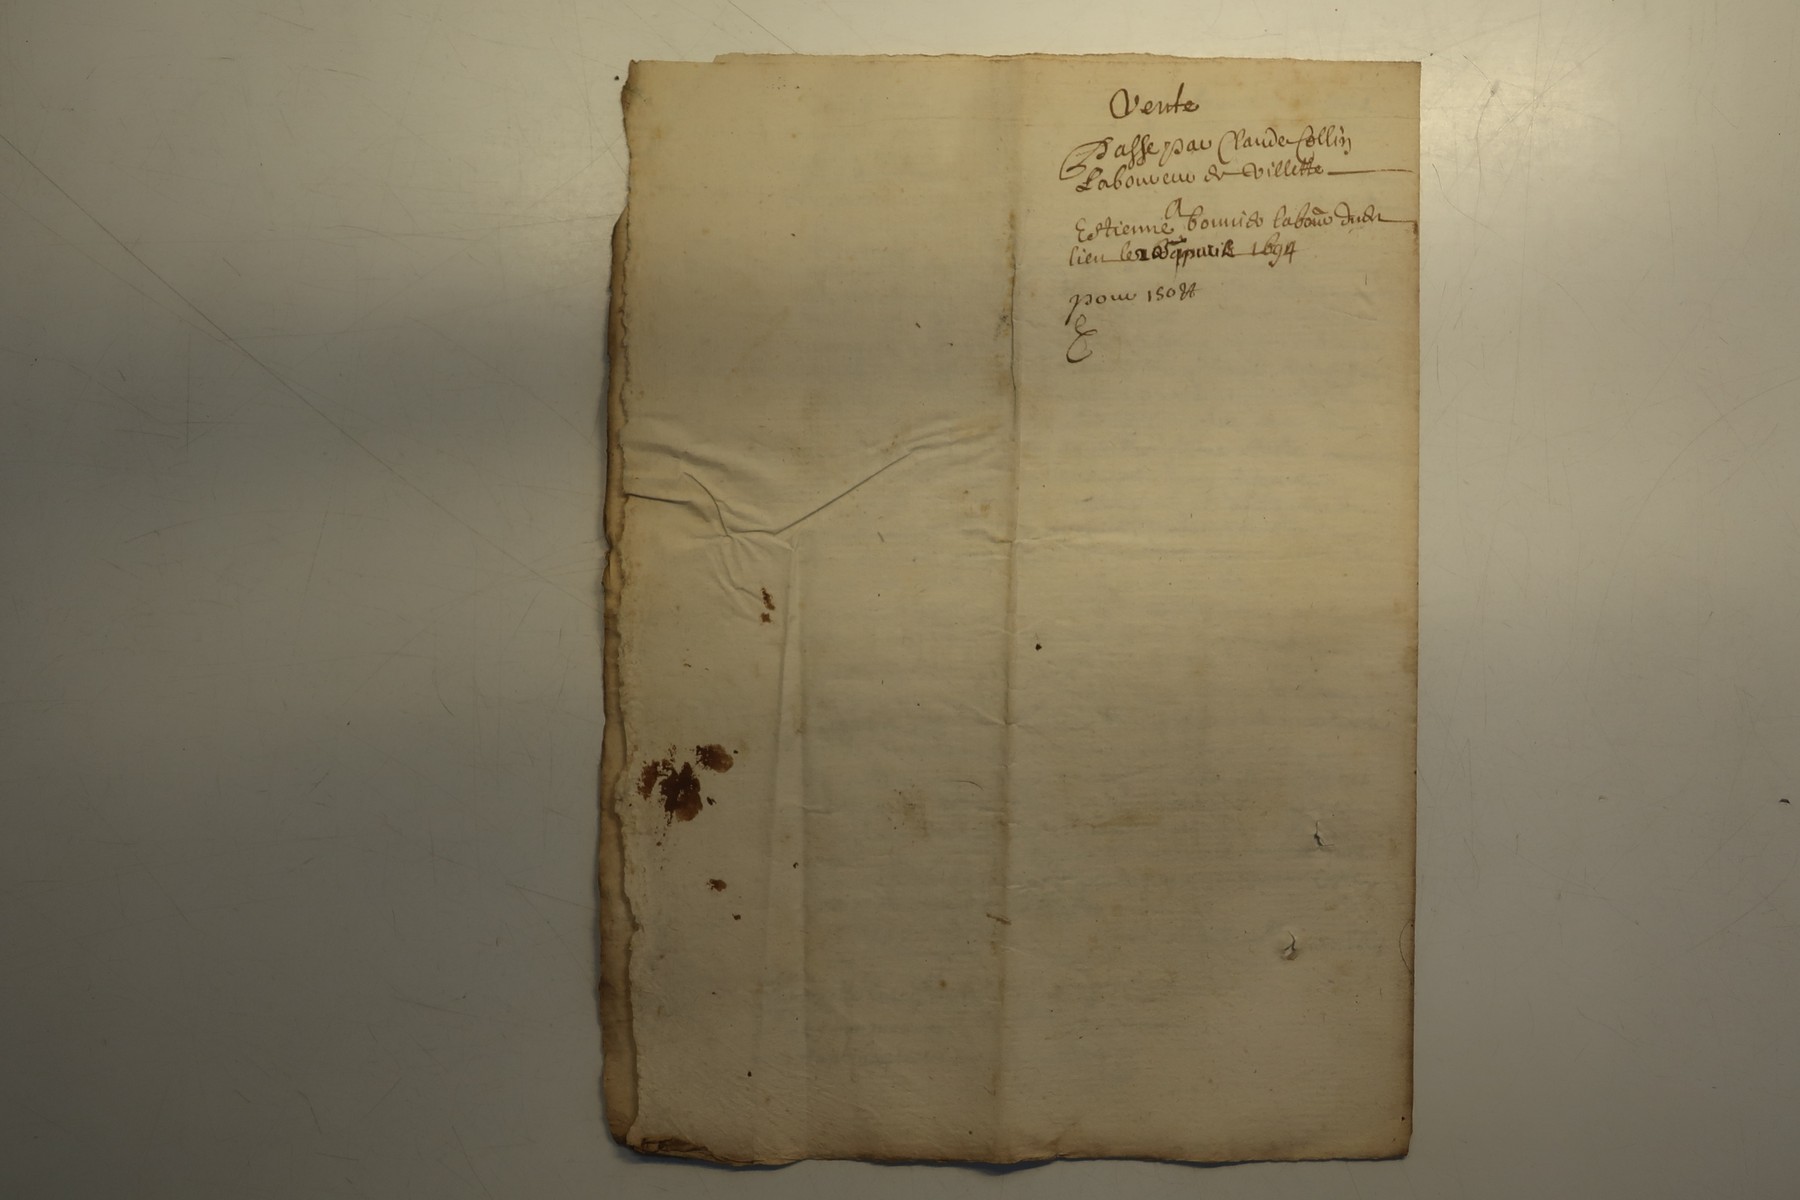 Vente
Passe par Claude Collin
Laboureur de Villette
A
Estienne bonnier labour dudit
lieu le 26 apvril 1694
pour 150 ₶